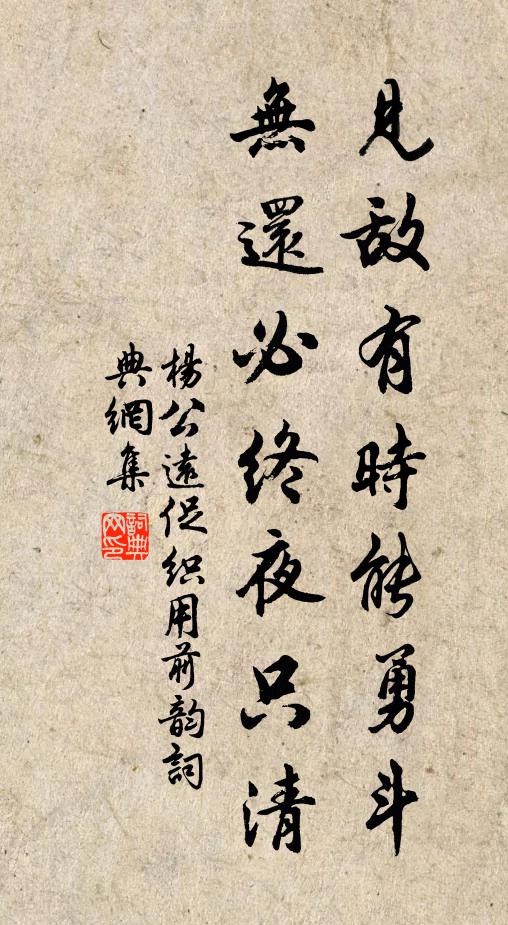 見敌有時能勇斗
無還必終夜只清
楊公遠促织用前韵詞
典網集
詞典网印